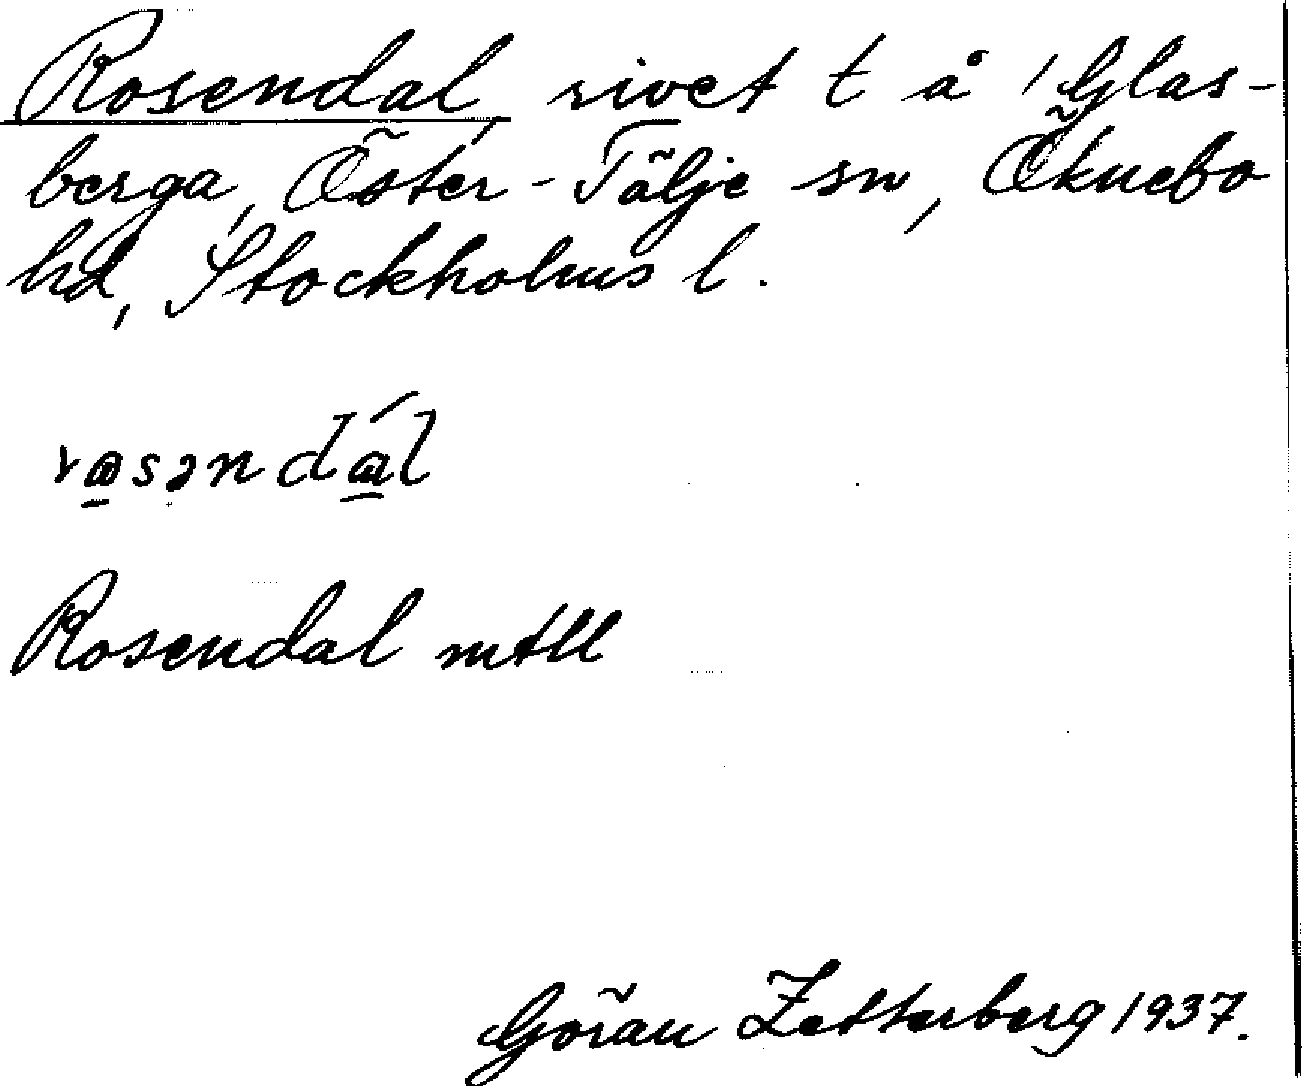 Rosendal, rivet t å 1 Glas-
berga, Öster-Tälje sn, Öknebo
hd, Stockholms l.
rosəndál
Rosendal mtll
Göran Zetterberg 1937.